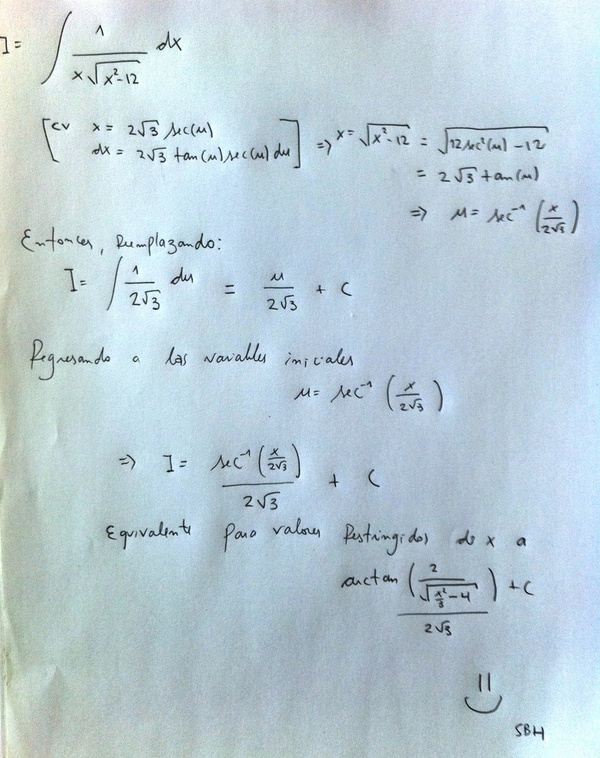 I = ∫ 1 / (x√(x²-12)) dx
[CV x = 2√3 sec(u)
dx = 2√3 tan(u) sec(u) du] => x = √(x²-12) = √(12sec²(u) - 12)
= 2√3 tan(u)
=> u = sec⁻¹(x/2√3)
Entonces, Reemplazando:
I = ∫ 1/(2√3) du = u/(2√3) + C
Regresando a las variables iniciales
u = sec⁻¹(x/2√3)
=> I = sec⁻¹(x/2√3) / (2√3) + C
Equivalente para valores Restringidos de x a
arctan(2/√(x²/3 - 4)) / (2√3) + C
SBH